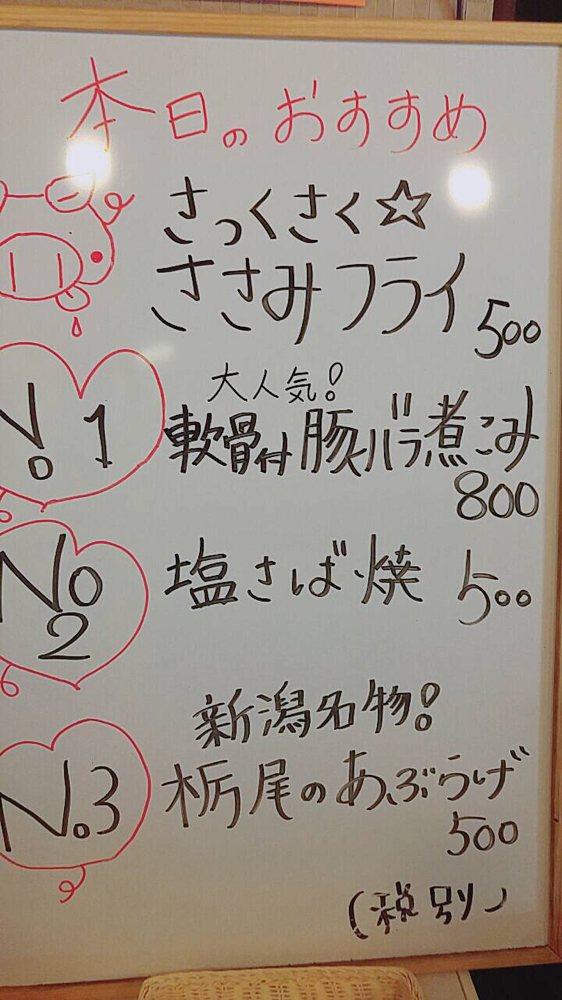 本日のおすすめ
さっくさく☆
ささみフライ
500
大人気!
No 1
軟骨付豚バラ煮こみ
800
No 2
塩さば焼 500
新潟名物!
No.3
栃尾のあぶらげ
500
(税別)